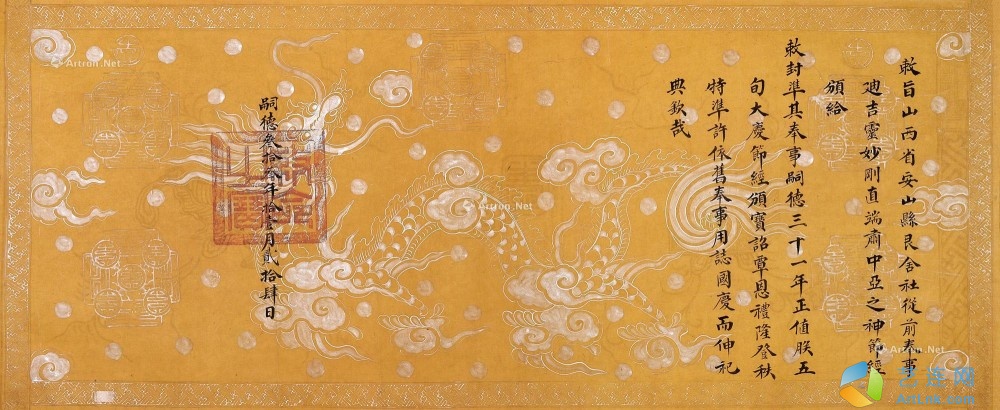 敕旨山西省安山縣艮舍社從前奉事
迪吉靈妙剛直端肅中亞之神節經
頒給
敕封準其奉事嗣德三十一年正值朕五
旬大慶節經頒寶詔覃恩禮隆登秩
特準許依舊奉事用誌國慶而伸祀
典欽哉
嗣德叁拾叁年拾壹月貳拾肆日
Artron.Net
Artron.Net
Artron.Net
Artron.Net
艺连网